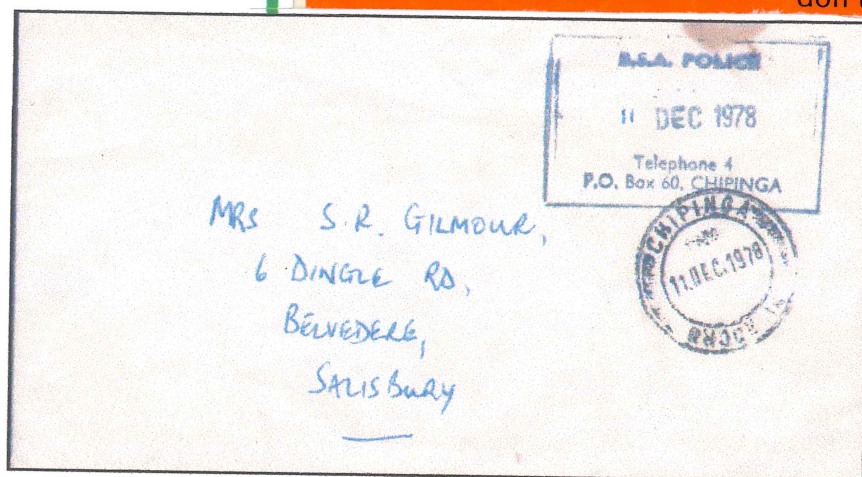 B.S.A. POLICE
11 DEC 1978
Telephone 4
P.O. Box 60, CHIPINGA
CHIPINGA
11.DEC.1978
MRS S.R. GILMOUR,
6 DINGLE RD,
BELVEDERE,
SALISBURY